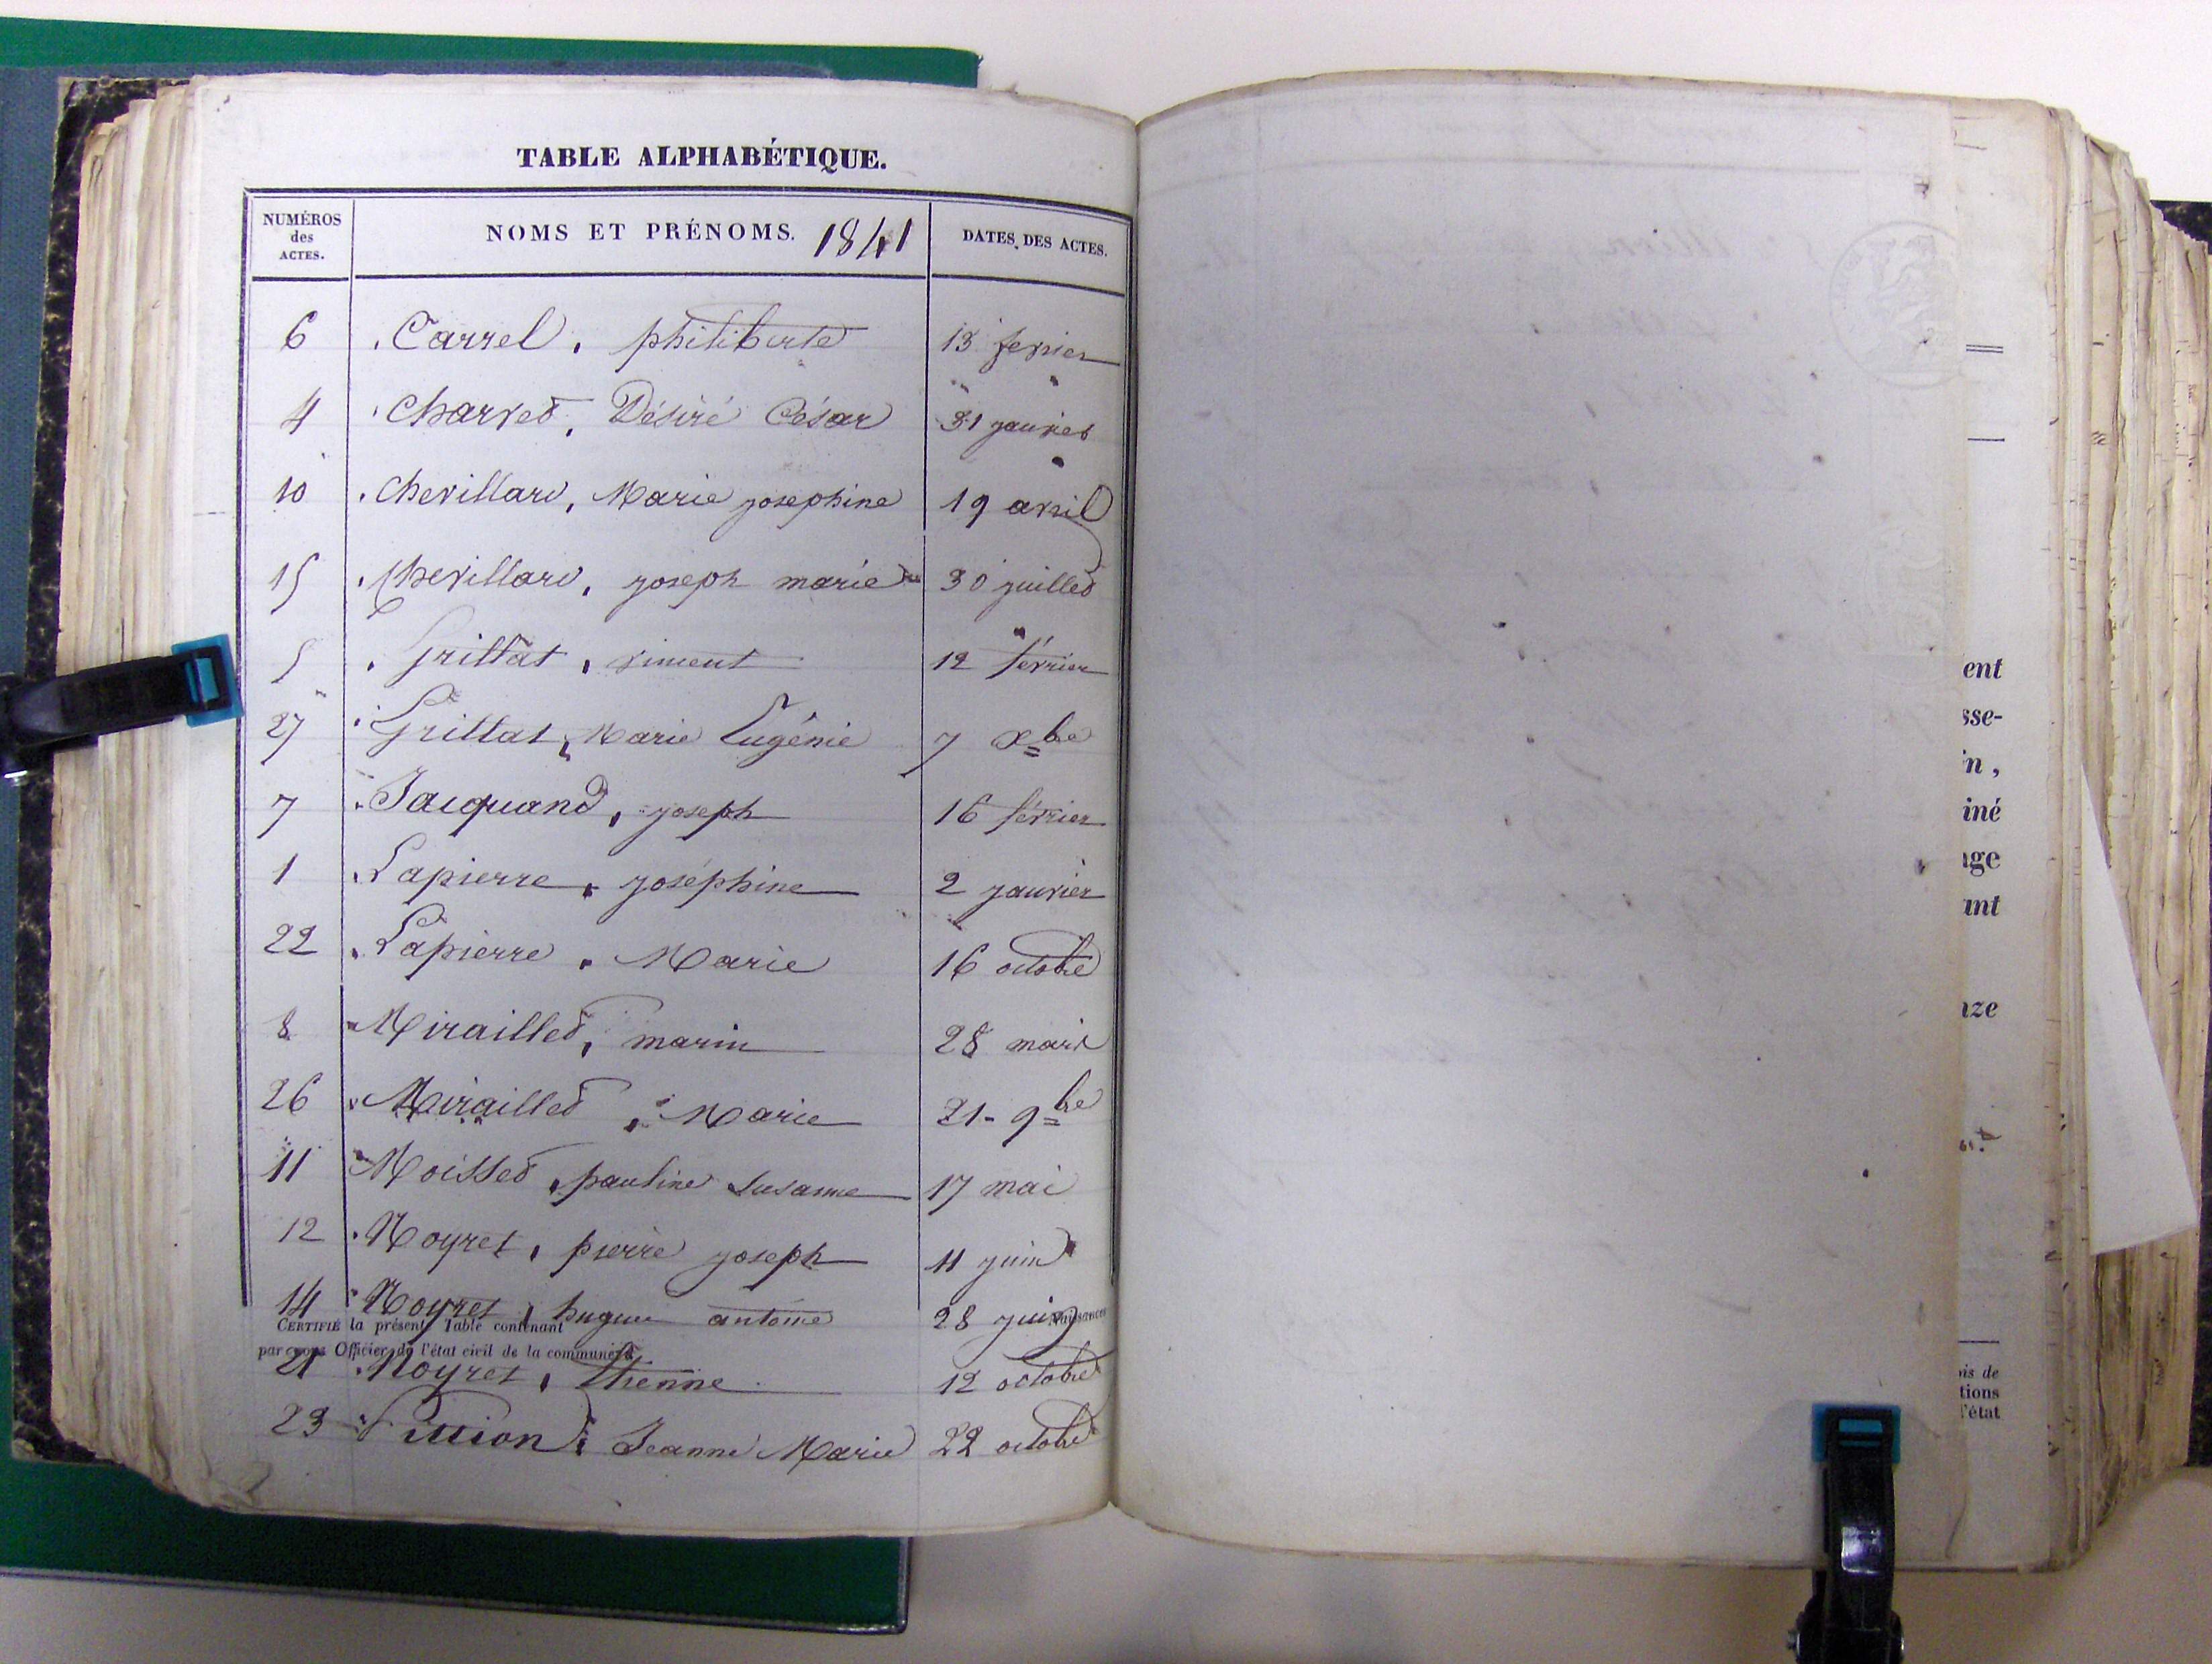 TABLE ALPHABÉTIQUE.
NUMÉROS des ACTES. NOMS ET PRÉNOMS. 1841 DATES DES ACTES.
6 Carrel, philiberte 13 fevrier
4 Charvet, Désiré César 31 janvier
10 Chevillard, Marie josephine 19 avril
15 Chevillard, joseph marie 30 juillet
5 Grillat, vincent 12 février
27 Grillat, Marie Eugénie 7 Xbre
7 Jacquand, joseph 16 février
1 Lapierre, joséphine 2 janvier
22 Lapierre, Marie 16 octobre
8 Miraillet, marin 28 mars
26 Miraillet, Marie 21 - 9bre
11 Moisset, pauline susanne 17 mai
12 Moyret, pierre joseph 11 juin
14 Moyret, hugues antoine 28 juin
Naissances
CERTIFIÉ la présente Table contenant
par nous Officier de l'état civil de la commune d
21 Moyret, Etienne 12 octobre
23 Jeanne Marie 22 octobre
ent
sse-
in,
iné
age
ant
nze
is de
tions
l'état